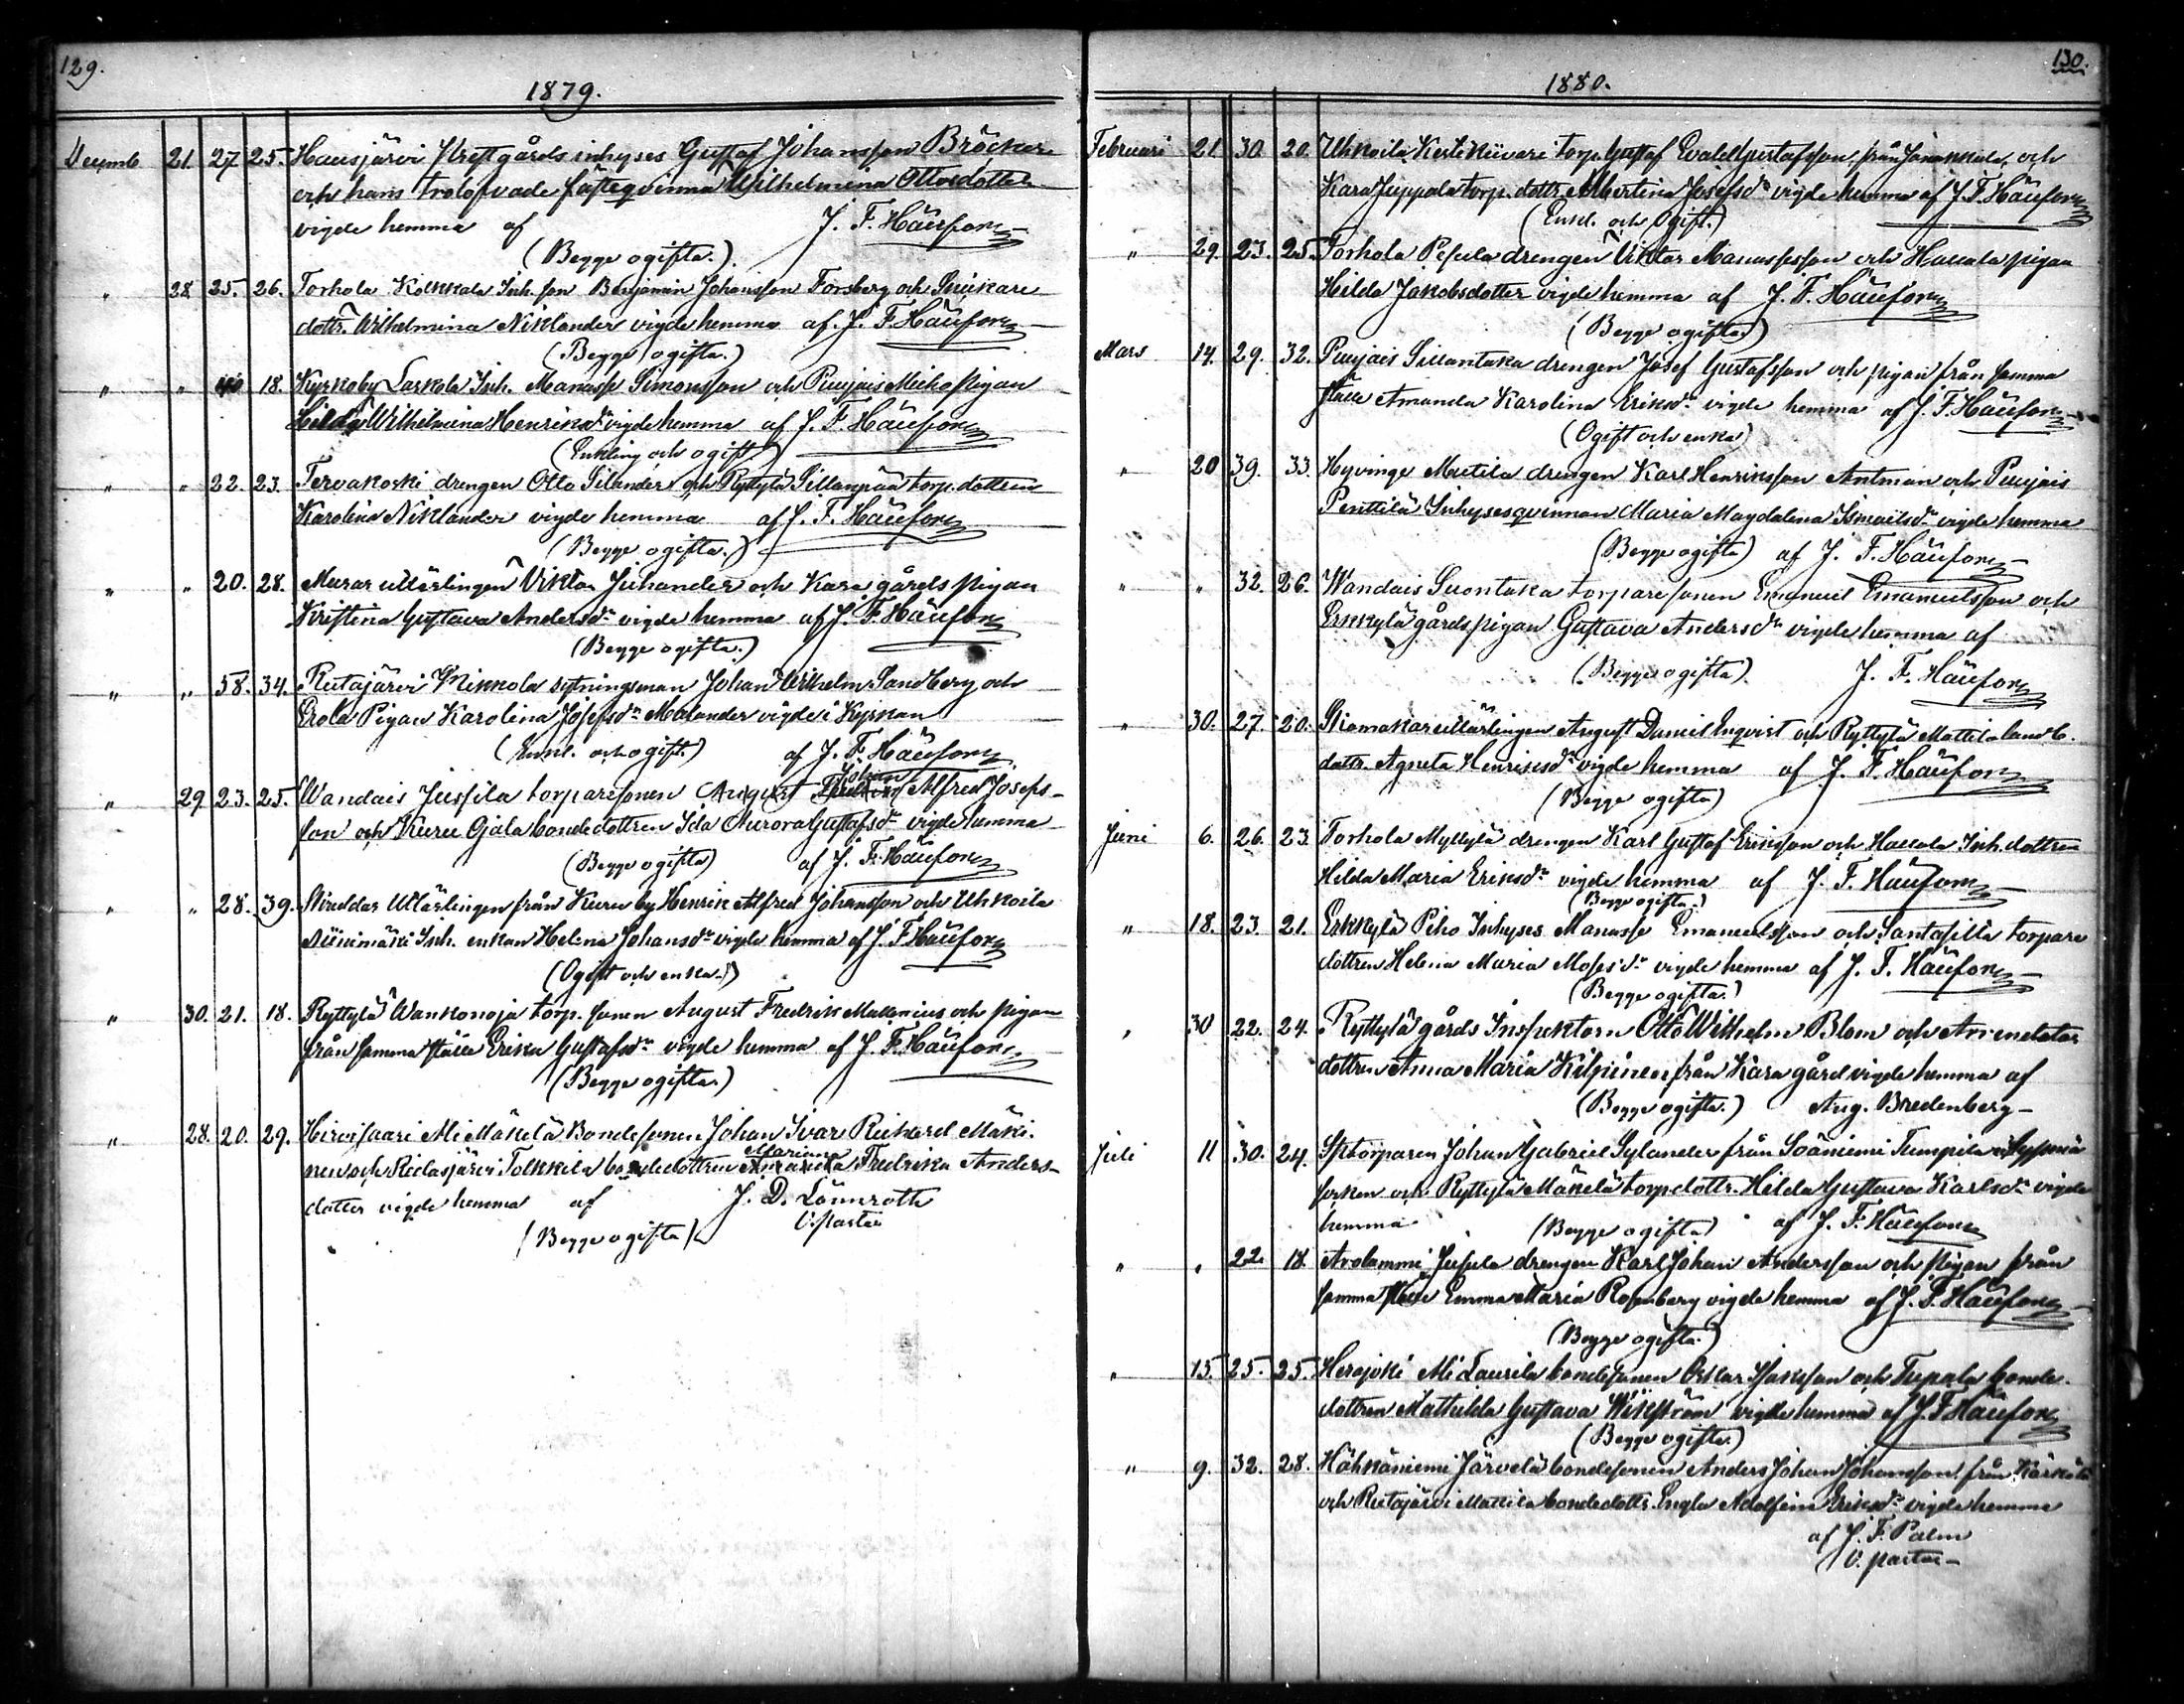 129.
1879.
Decemb 21. 27 25. Hausjärvi Prestgårds inhyses Gustaf Johansson Bröcker
och hans trolofvade fästeqvinna Wilhelmina Ottosdotter
vigde hemma af J. F. Häufors
(Begge ogifta.)
" 28. 25. 26. Torhola Kolkkala Inh. son Benjamin Johansson Forsberg och Snickare
dottr. Wilhelmina Niklander vigde hemma af J. F. Häufors
(Begge ogifta.)
" " 40 18. Kyrkoby Laskola Inh. Manasse Simonsson och Puujais Mieho pigan
Hilda Wilhelmina Henriksdr vigde hemma af J. F. Häufors
(Enkling och ogift)
" " 22. 23. Tervakoski drengen Otto Silander och Ryttylä Sillanpää torp. dottren
Karolina Niklander vigde hemma af J. F. Häufors
(Begge ogifta.)
" " 20. 28. Murar utlärlingen Viktor Juhander och Kara gårds pigan
Kristina Gustava Andersdr vigde hemma af J. F. Häufors
(Begge ogifta.)
" " 58. 34. Riitajärvi Mikkola sytningsman Johan Wilhelm Sandberg och
Erola Pigan Karolina Josefsdr Malander vigde i Kyrkan
(Enkl. och ogift) af J. F. Häufors
Johan
" 29. 23. 25. Wandais Jussila torparesonen August Alfred Josefs-
son och Kuru Ojala bondedottren Ida Aurora Gustafsdr vigde hemma
(Begge ogifta) af J. F. Häufors
" " 28. 39. Skräddar Utlärlingen från Kuru by Henrik Alfred Johansson och Uhkoila
Niinimäki Inh. enkan Helena Johansdr vigde hemma af J. F. Häufors
(Ogift och enka.)
" 30. 21. 18. Ryttylä Wankonoja torp. sonen August Fredrik Mallenius och pigan
från samma ställe Erika Gustafsdr vigde hemma af J. F. Häufors
(Begge ogifta)
" 28. 20. 29. Hirvisaari Ali Mäkelä Bondesonen Johan Ivar Rickard Mäki-
Mariana
nen och Ridasjärvi Tolkkila bondedottren Fredrika Anders-
dotter vigde hemma af J. D. Lönnroth
(Begge ogifta) V. pastor
130.
1880.
Februari 21. 30. 20. Uhkoila Kestikiivari torp. Gustaf Evald Gustafsson, från Janakkala, och
Kara Juppala torp. dottr. Albertina Josefsdr vigde hemma af J. F. Häufors
(Enkl. och Ogift.)
" 29. 23. 25. Torhola Pesula drengen Viktor Manassesson och Haccala pigan
Hilda Jakobsdotter vigde hemma af J. F. Häufors
(Begge ogifta)
Mars 14. 29. 32. Puujais Sillantaka drengen Josef Gustafsson och pigan från samma
ställe Amanda Karolina Eriksdr vigde hemma af J. F. Häufors
(Ogift och enka)
" 20 39. 33. Hyvinge Muttila drengen Karl Henriksson Antman och Puujais
Penttilä Inhysesqvinnan Maria Magdalena Ismailsdr vigde hemma
(Begge ogifta) af J. F. Häufors
" " 32. 26. Wandais Suontaka torparesonen Emanuel Emanuelsson och
Erkkylä gårds pigan Gustava Andersdr vigde hemma af
(Begge ogifta) J. F. Häufors
" 30. 27. 20. Skomakare utlärlingen August Daniel Enqvist och Ryttylä Mattila landb.
dottr. Agneta Henriksdr vigde hemma af J. F. Häufors
(Begge ogifta)
Juni 6. 26. 23. Torhola Myllylä drengen Karl Gustaf Eriksson och Haccala Inh. dottren
Hilda Maria Eriksdr vigde hemma af J. F. Häufors
(Begge ogifta.)
" 18. 23. 21. Erkkylä Piho Inhyses Manasse Emanuelsson och Santasilla torpare
dottren Helena Maria Mosesdr vigde hemma af J. F. Häufors
(Begge ogifta.)
" 30 22. 24. Ryttylä gårds Inspektorn Otto Wilhelm Blom och Arrendator
dottren Anna Maria Kilpinen från Kara gård vigde hemma af
(Begge ogifta.) Aug. Bredenberg
Juli 11 30. 24. Sptorparen Johan Gabriel Sylander från Soäniemi Tumpila i
socken och Ryttylä Mäkelä torp dottr. Hilda Gustava Karlsdr vigde
hemma (Begge ogifta) af J. F. Häufors
" " 22 18. Arolammi Jusula drengen Karl Johan Andersson och pigan från
samma ställe Emma Maria Rosenberg vigde hemma af J. F. Häufors
(Begge ogifta.)
" 15. 25. 25. Herajoki Ali Laurila bondesonen Oskar Isaksson och Tupala bonde-
dottren Mathilda Gustava Wikström vigde hemma af J. F. Häufors
(Begge ogifta.)
" 9. 32. 28. Hähkäniemi Järvelä bondesonen Anders Johan Johansson från Kärkölä
och Riitajärvi Mattila bondedottr. Engla Adolfina Eriksdr vigde hemma
af J. F. Palm
V. pastor